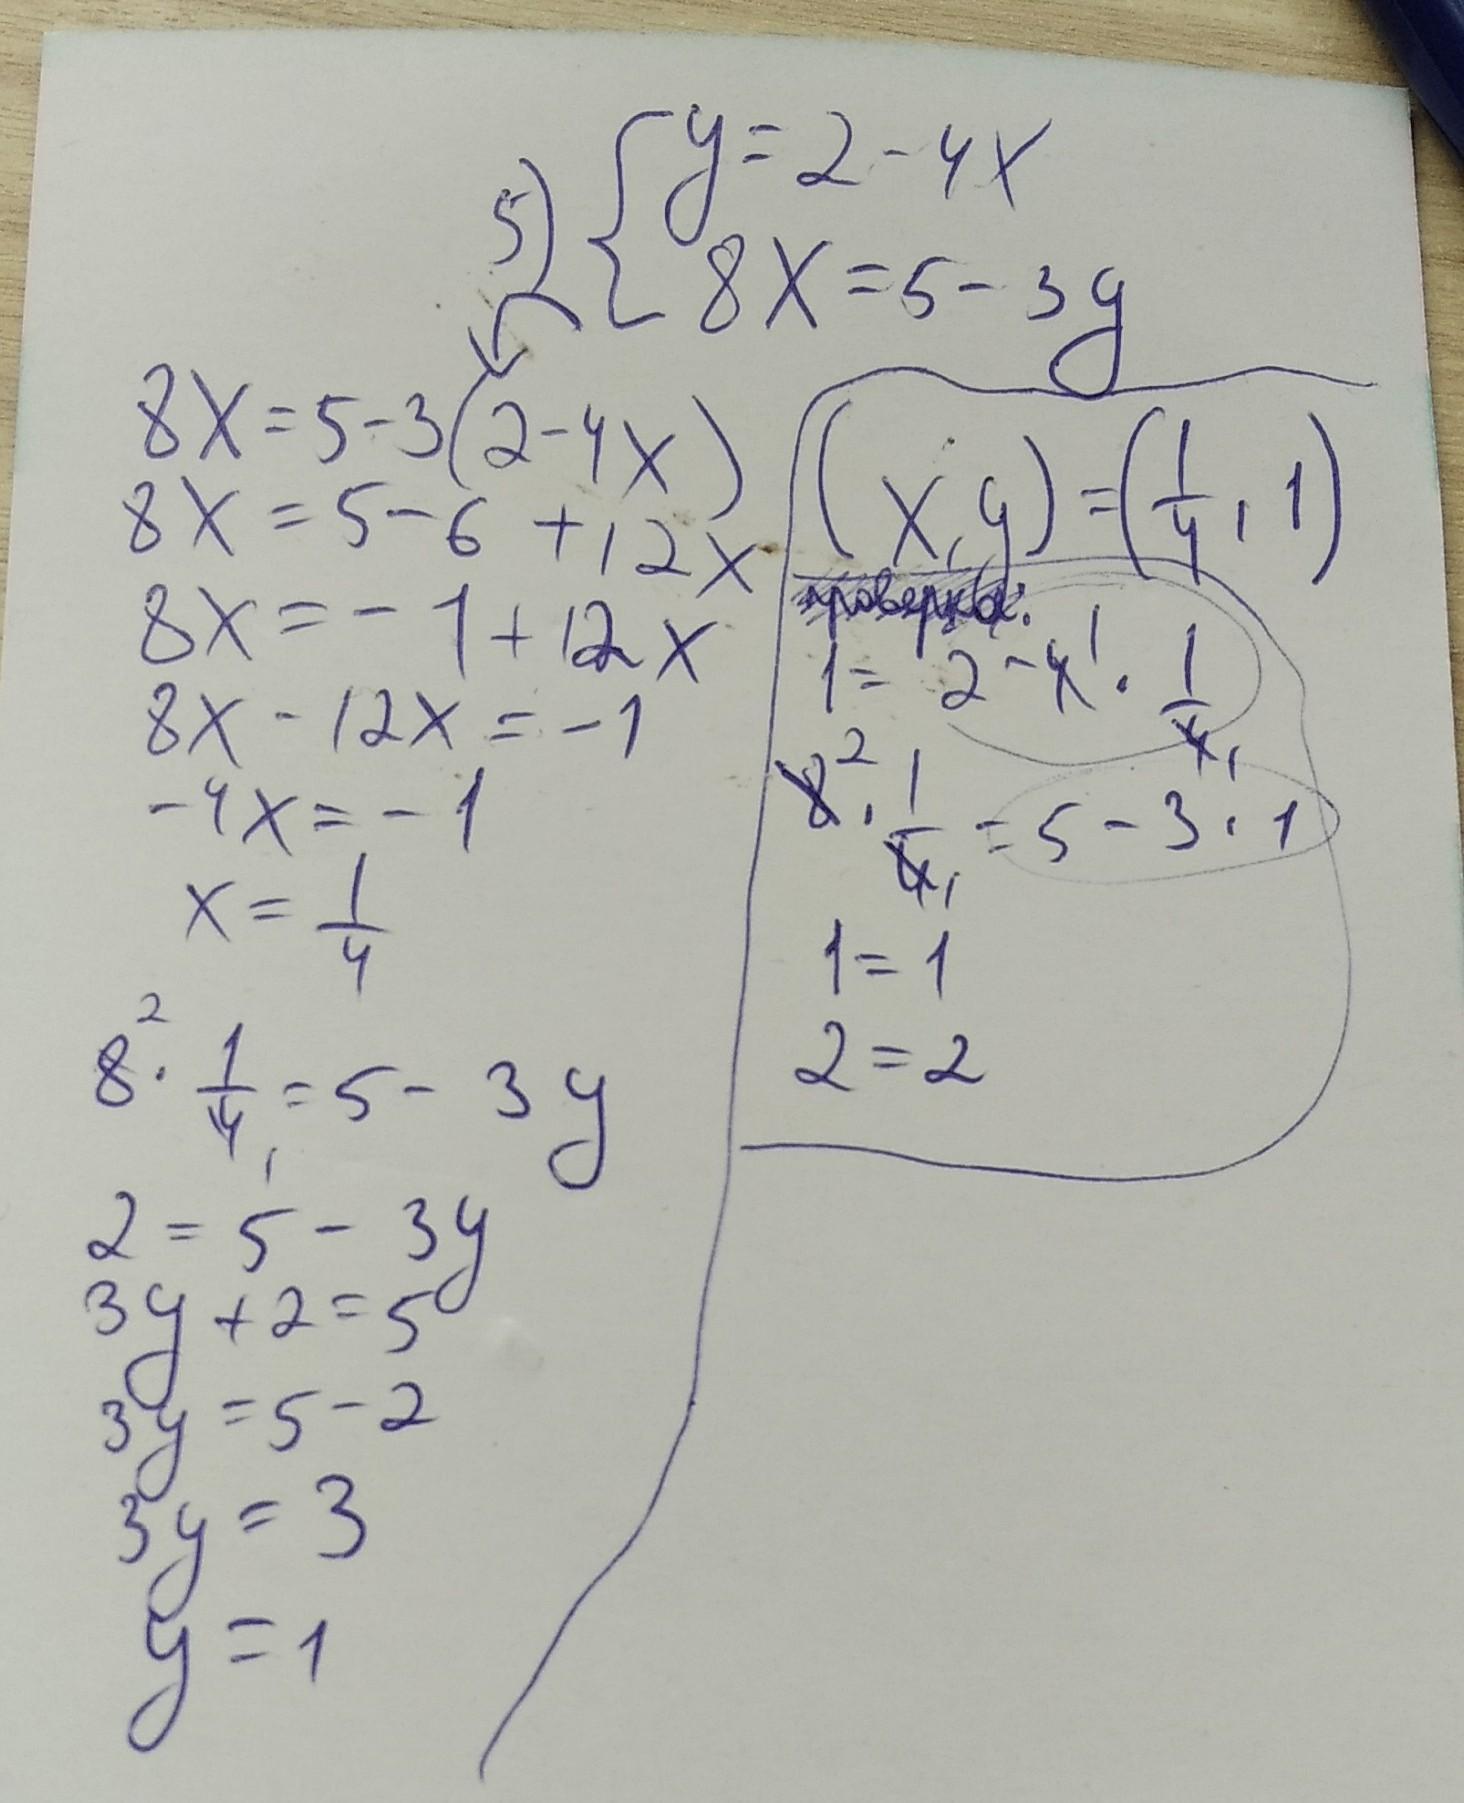 5) { y = 2 - 4x
8x = 5 - 3y
8x = 5 - 3(2 - 4x)
8x = 5 - 6 + 12x
8x = -1 + 12x
8x - 12x = -1
-4x = -1
x = 1/4
8² · 1/4₁ = 5 - 3y
2 = 5 - 3y
3y + 2 = 5
3y = 5 - 2
3y = 3
y = 1
(x, y) = (1/4, 1)
проверка:
1 = 2 - 4¹ · 1/4₁
8² · 1/4₁ = 5 - 3 · 1
1 = 1
2 = 2